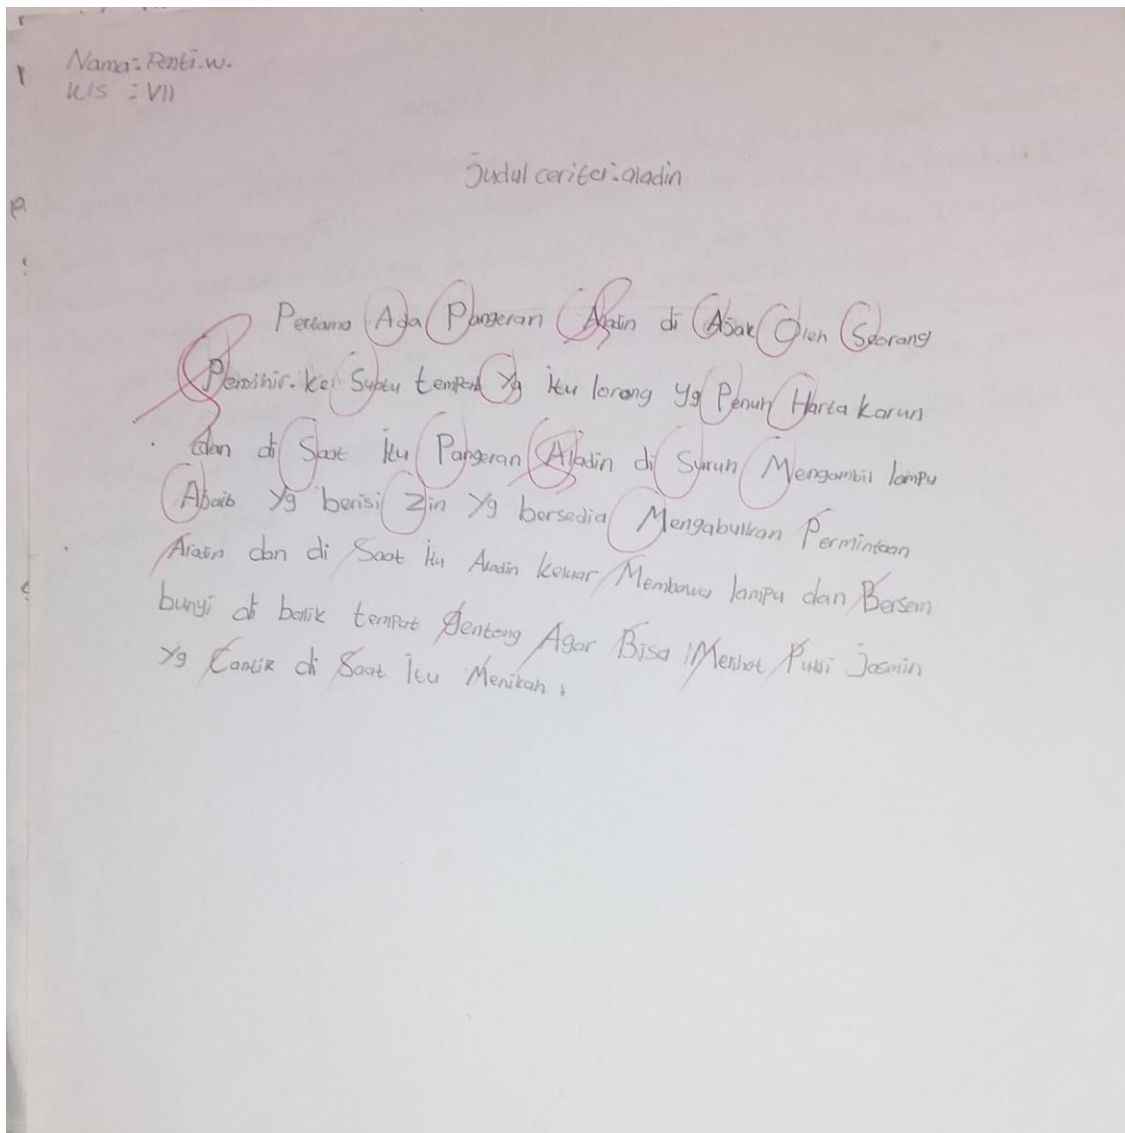 Nama: Penti.w.
Kls : VII
Judul cerita: aladin
Pertama Ada Pangeran Aladin di Ajak Oleh Seorang
Penihir. ke Suatu tempat Yg itu lorong yg Penuh Harta karun
dan di Saat itu Pangeran Aladin di Suruh Mengambil lampu
Ajaib Yg berisi Zin Yg bersedia Mengabulkan Permintaan
Aladin dan di Saat itu Aladin keluar Membawa lampu dan Bersem
bunyi di balik tempat Genteng Agar Bisa Melihat Putri Jasmin
Yg Cantik di Saat Itu Menikah.